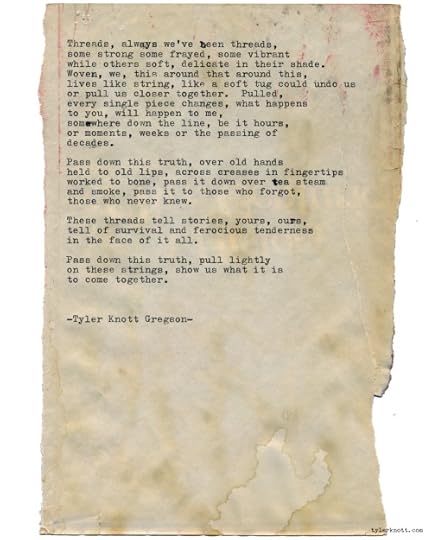 Threads, always we've been threads,
some strong some frayed, some vibrant
while others soft, delicate in their shade.
Woven, we, this around that around this,
lives like string, like a soft tug could undo us
or pull us closer together.  Pulled,
every single piece changes, what happens
to you, will happen to me,
somewhere down the line, be it hours,
or moments, weeks or the passing of
decades.
Pass down this truth, over old hands
held to old lips, across creases in fingertips
worked to bone, pass it down over tea steam
and smoke, pass it to those who forgot,
those who never knew.
These threads tell stories, yours, ours,
tell of survival and ferocious tenderness
in the face of it all.
Pass down this truth, pull lightly
on these strings, show us what it is
to come together.
-Tyler Knott Gregson-
tylerknott.com